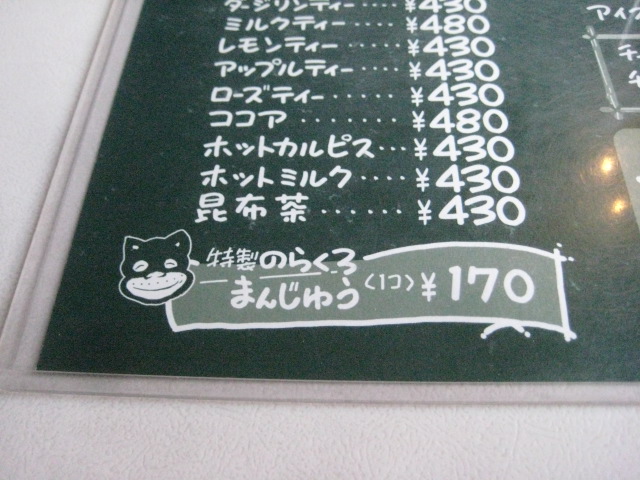 ダージリンティー････¥430
ミルクティー････¥480
レモンティー････¥430
アップルティー････¥430
ローズティー･･････¥430
ココア････････¥480
ホットカルピス･･･¥430
ホットミルク････¥430
昆布茶･･････¥430
特製のらくろ
まんじゅう〈1コ〉¥170
アイ
チ